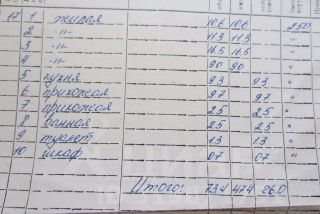 17 1 жилая 16.6 16.6 2.50
2 -"- 11.3 11.3 "
3 -"- 16.5 16.5 "
4 -"- 9.0 9.0 "
5 кухня 9.3 9.3 "
6 прихожая 9.7 9.7 "
7 прихожая 2.5 2.5 "
8 ванная 2.5 2.5 "
9 туалет 1.3 1.3 "
10 шкаф 0.7 0.7 "
Итого: 73.4 47.4 26.0